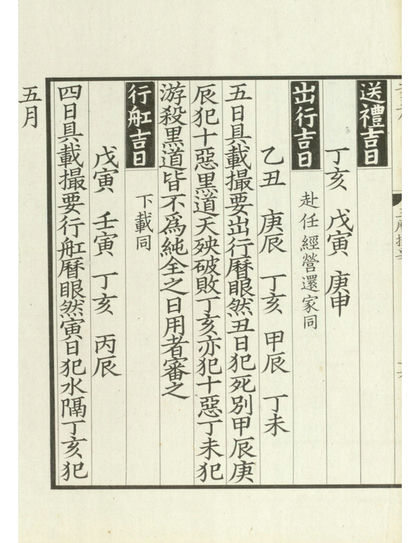 送禮吉日
丁亥 戊寅 庚申
出行吉日 赴任經營還家同
乙丑 庚辰 丁亥 甲辰 丁未
五日具載撮要出行曆眼然丑日犯死別甲辰庚
辰犯十惡黑道天殃破敗丁亥亦犯十惡丁未犯
游殺黑道皆不爲純全之日用者審之
行舡吉日 下載同
戊寅 壬寅 丁亥 丙辰
四日具載撮要行舡曆眼然寅日犯水隔丁亥犯
五月